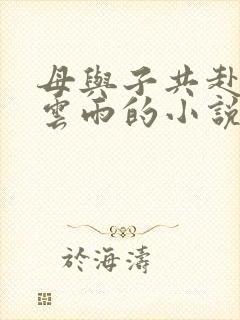 母與子共赴
雲雨的小說
於海濤